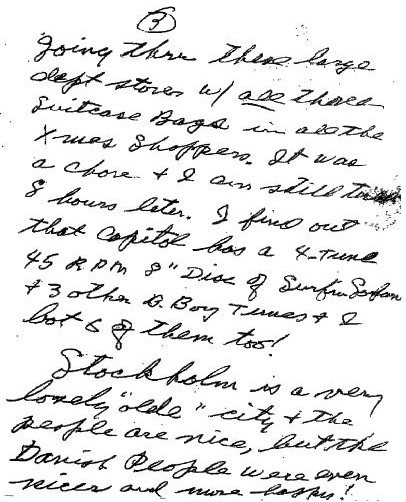 3
Going thru these large
dept stores w/ all those
Suitcase Bags in all the
Xmas Shoppers. It was
a chore & I am still
8 hours later. I find out
that Capitol has a 4-tune
45 RPM 8" Disc of Surfin Safari
& 3 other B. Boy Tunes & I
bot 6 of them too!
Stockholm is a very
lovely "olde" city & the
people are nice, but the
Danish People were even
nicer and more